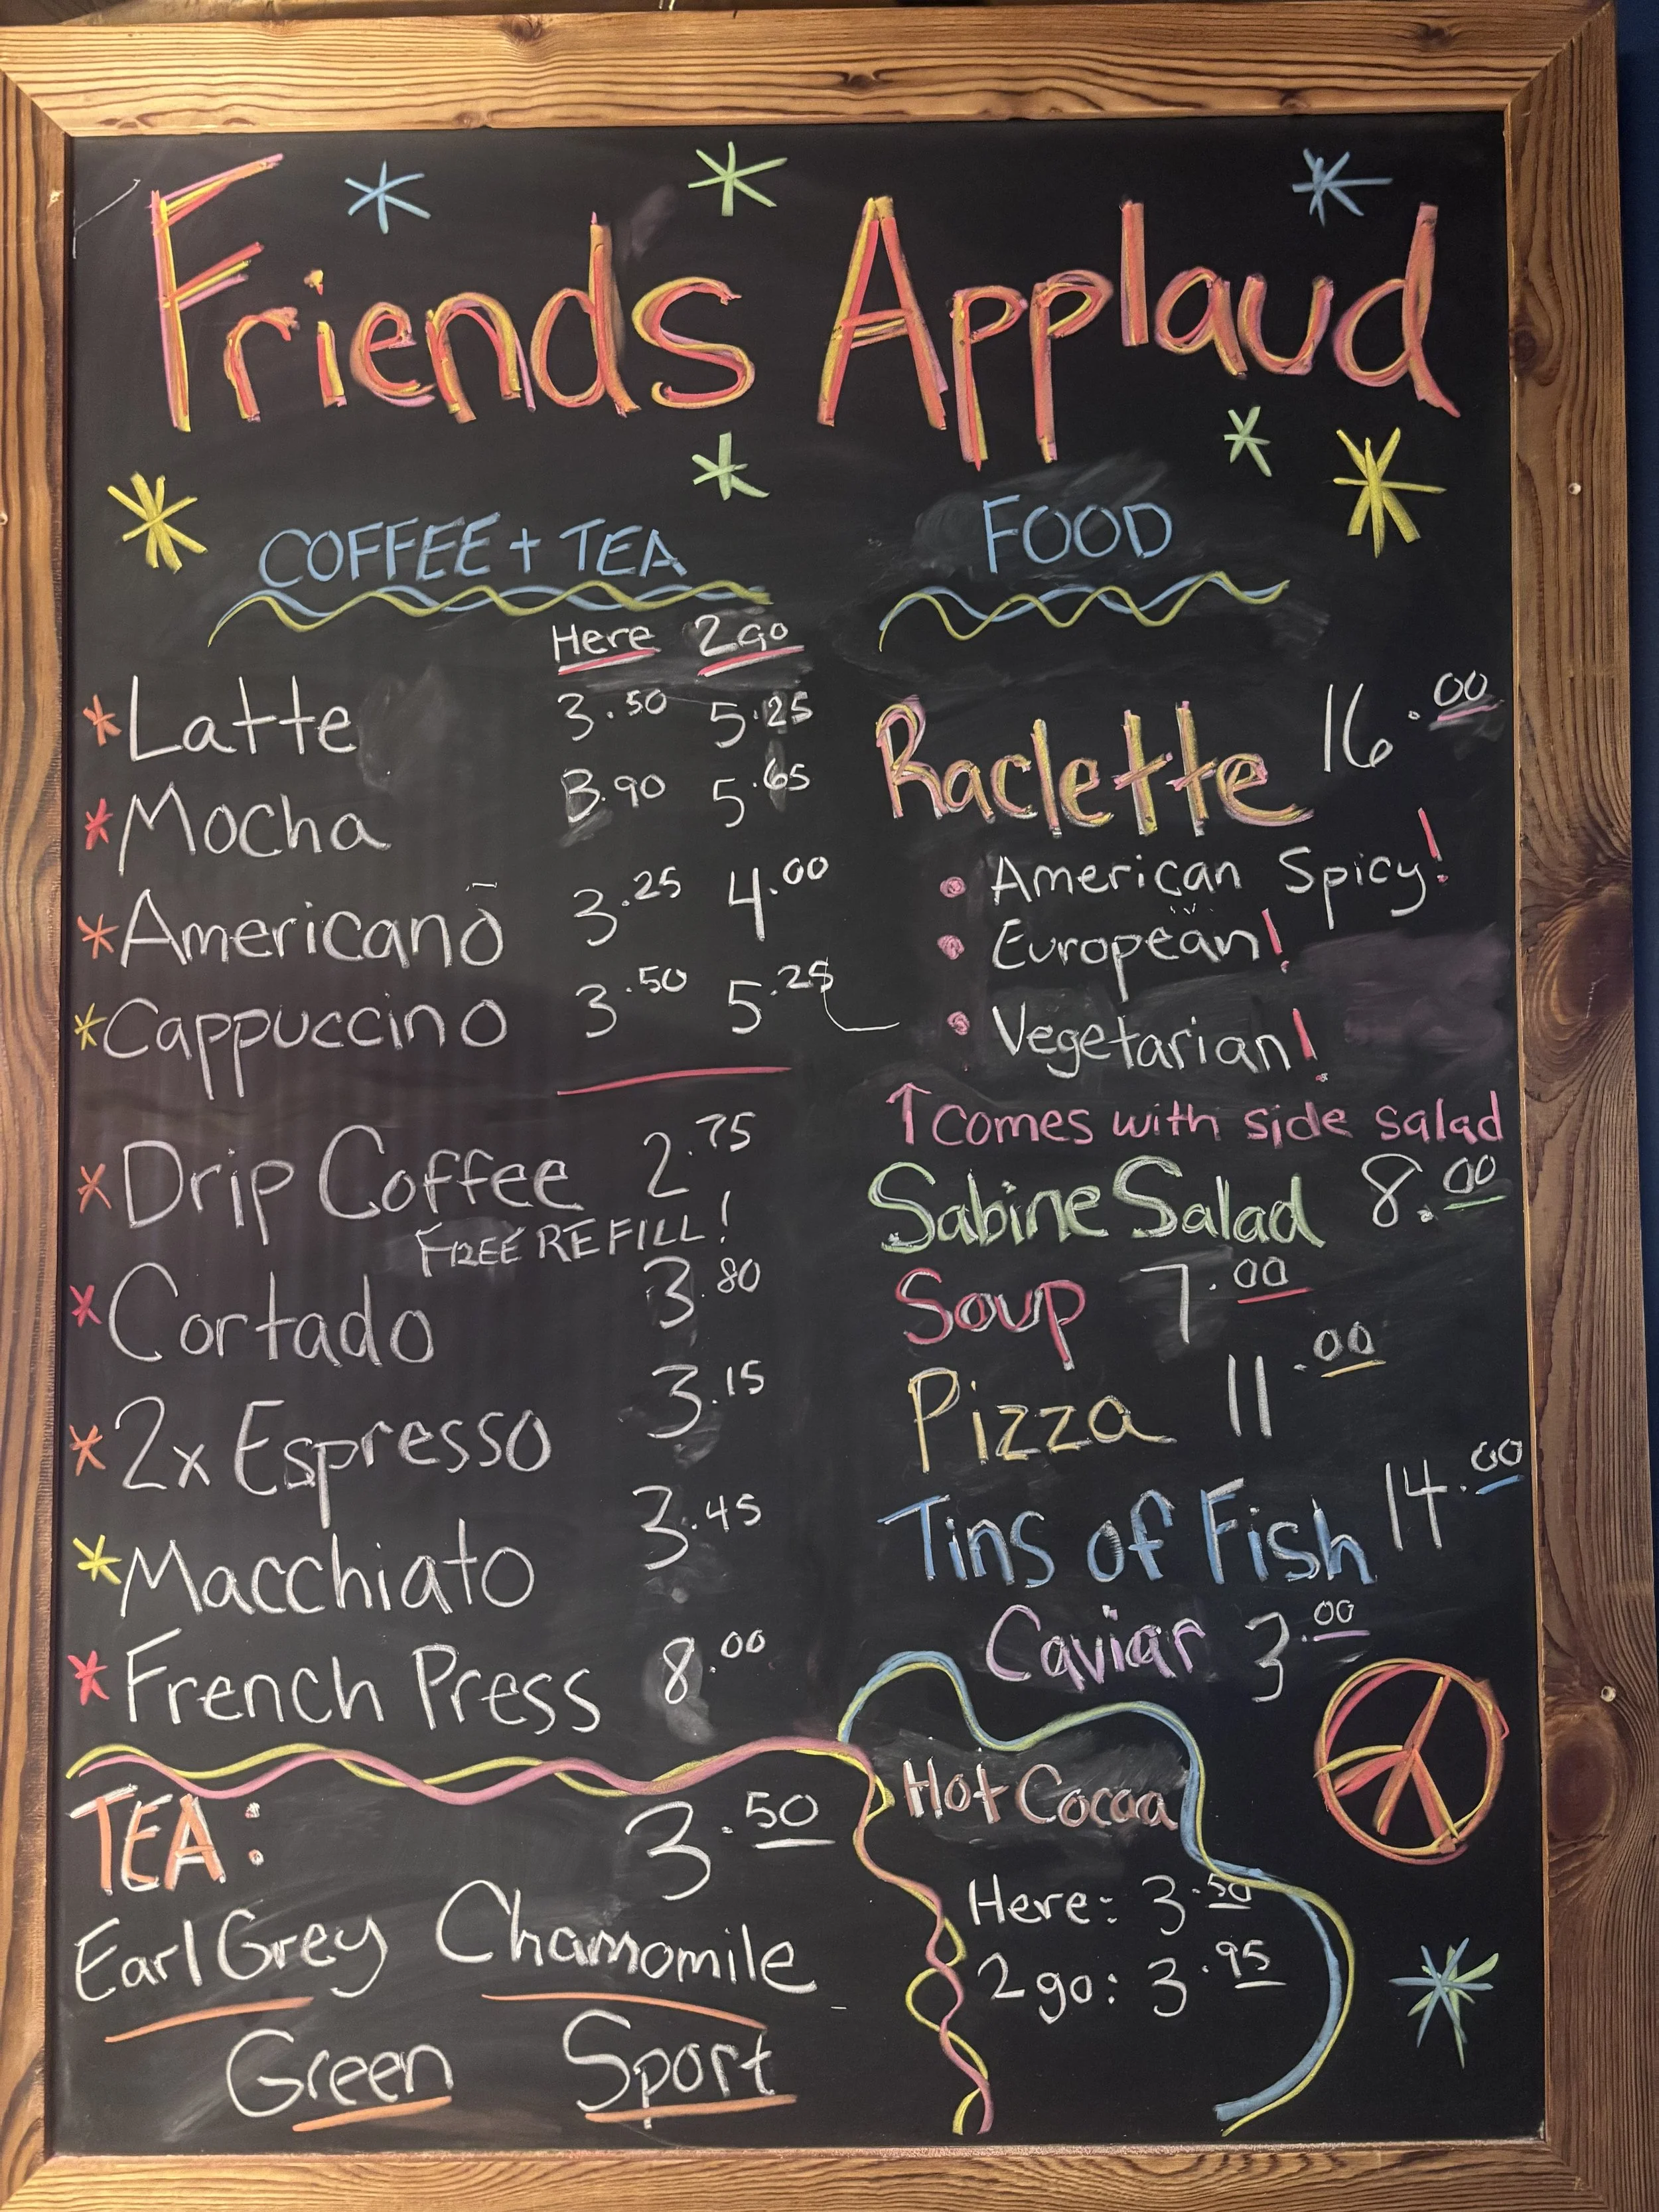 Friends Applaud
COFFEE + TEA
Here 2go
*Latte 3.50 5.25
*Mocha 3.90 5.65
*Americano 3.25 4.00
*Cappuccino 3.50 5.25
*Drip Coffee 2.75
FREE REFILL!
*Cortado 3.80
*2x Espresso 3.15
*Macchiato 3.45
*French Press 8.00
TEA: 3.50
Earl Grey Chamomile
Green Sport
FOOD
Raclette 16.00
• American Spicy!
• European!
• Vegetarian!
↑ comes with side salad
Sabine Salad 8.00
Soup 7.00
Pizza 11.00
Tins of Fish 14.00
Caviar 3.00
Hot Cocoa
Here: 3.50
2go: 3.95